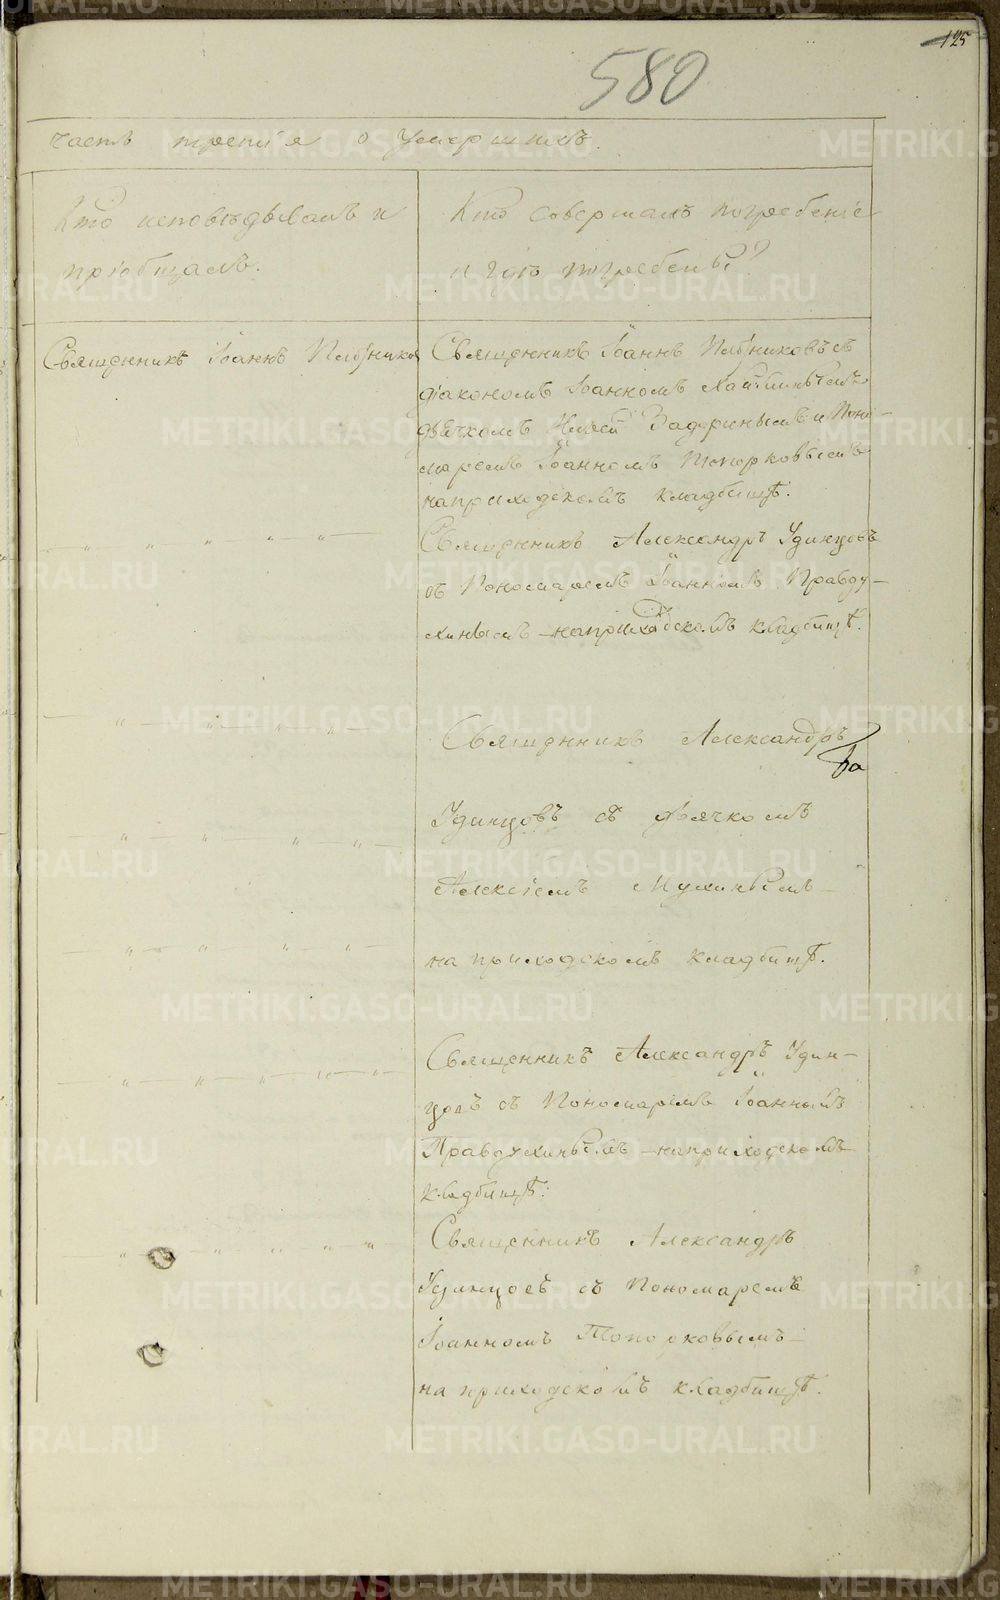 125
580
часть третія о Умершихъ.
Кто исповѣдывалъ и
пріобщалъ.
Кто совершалъ погребеніе
и гдѣ погребены?
Священникъ Іоаннъ
Священникъ Іоаннъ
діакономъ Іоанномъ
Задоринымъ и Поно-
маремъ Іоанномъ Топорковымъ
на приходскомъ кладбищѣ.
Священникъ Александръ Удинцовъ
съ Пономаремъ Іоанномъ Правду-
хинымъ на приходскомъ кладбищѣ.
Священникъ Александръ
Удинцовъ съ дьячкомъ
Алексіемъ Мухинымъ
на приходскомъ кладбищѣ.
Священникъ Александръ Удин-
цовъ съ Пономаремъ Іоанномъ
Правдухинымъ на приходскомъ
кладбищѣ.
Священникъ Александръ
Удинцовъ съ Пономаремъ
Іоанномъ Топорковымъ
на приходскомъ кладбищѣ.
METRIKI.GASO-URAL.RU